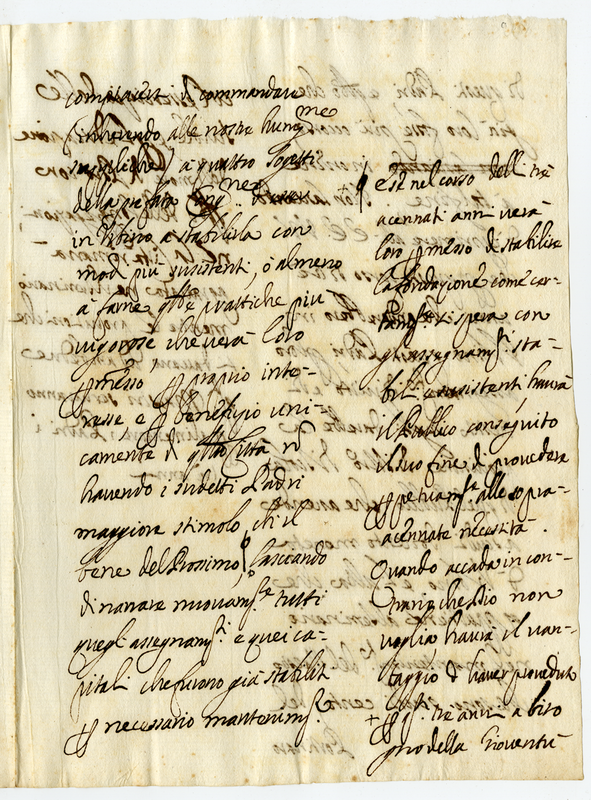 compiacersi di commandare
(inherendo alle nostre humme
suppliche) a quattro sogetti
della prefata
in Urbino a stabilirla con
modi più susistenti, ò almeno
a farne qtte prattiche più
vigorose che verà loro
pmesso, p proprio inte-
resse e p beneficio uni-
camente di qtta Città no
havendo i sudetti Padri
maggiore stimolo che il
bene del Prossimo, lasciando
di narare nuovamte tutti
quegli assegnamti e quei ca-
pitali che furono già stabiliti
p necessario mantenimto.
e se nel corso delli trè
acennati anni verà
loro pmesso di stabilire
la fondazione come cer-
tamte si spera con
gli assegnamti sta-
bili e susistenti, haurà
il Publico conseguito
il suo fine di provedere
ppetuamte alle sopra-
acennate necessità.
Quando accada in con-
trario che Dio non
voglia, haurà il van-
taggio d haver proveduto
+ p gli tre anni a biso
gno della Gioventù